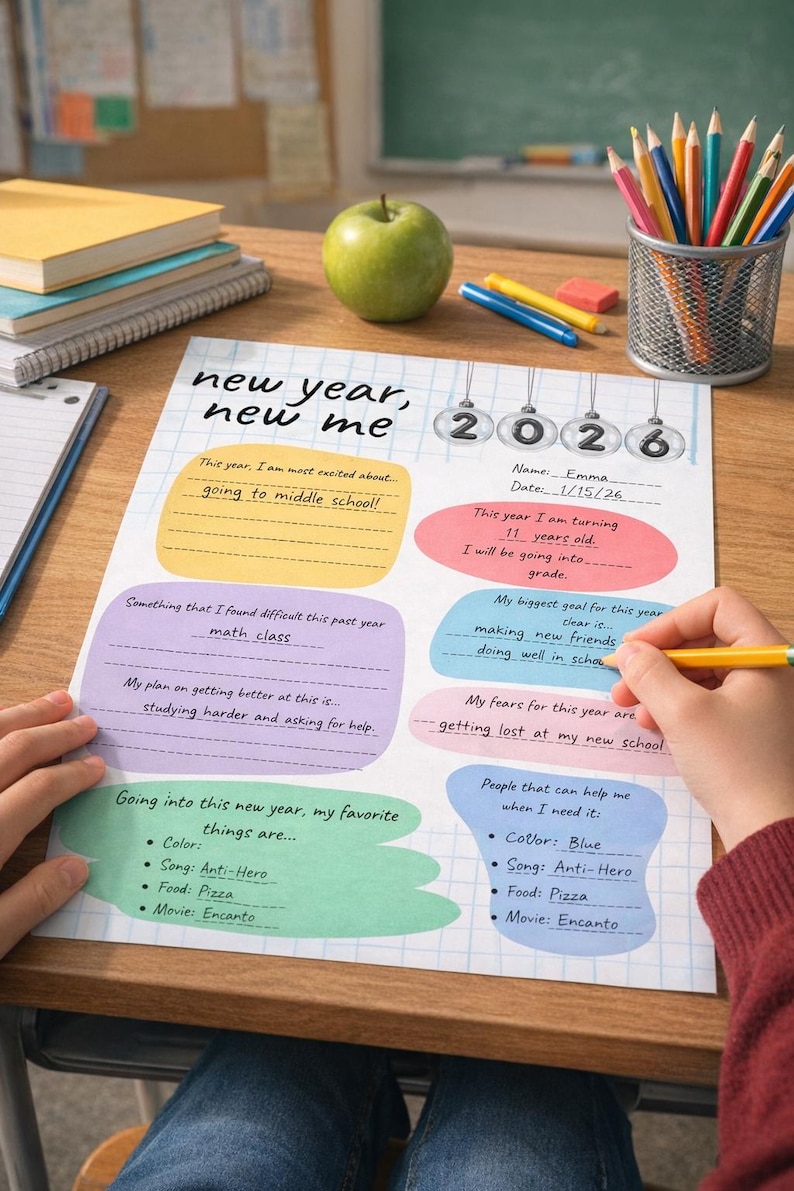 new year,
new me
2026
Name: Emma
Date: 1/15/26
This year, I am most excited about...
going to middle school!
This year I am turning
11 years old.
I will be going into
grade.
Something that I found difficult this past year
math class
My plan on getting better at this is...
studying harder and asking for help.
My biggest goal for this year
clear is...
making new friends
doing well in schoo
My fears for this year are
getting lost at my new school
Going into this new year, my favorite
things are...
• Color:
• Song: Anti-Hero
• Food: Pizza
• Movie: Encanto
People that can help me
when I need it:
• Color: Blue
• Song: Anti-Hero
• Food: Pizza
• Movie: Encanto